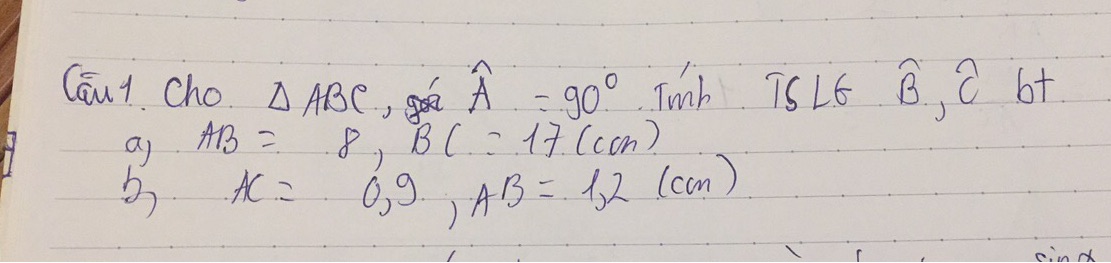 Câu 1. Cho △ABC, Â = 90° Tính TSLG B̂, Ĉ bt
a, AB = 8, BC = 17 (cm)
b, AC = 0,9, AB = 1,2 (cm)
sin α